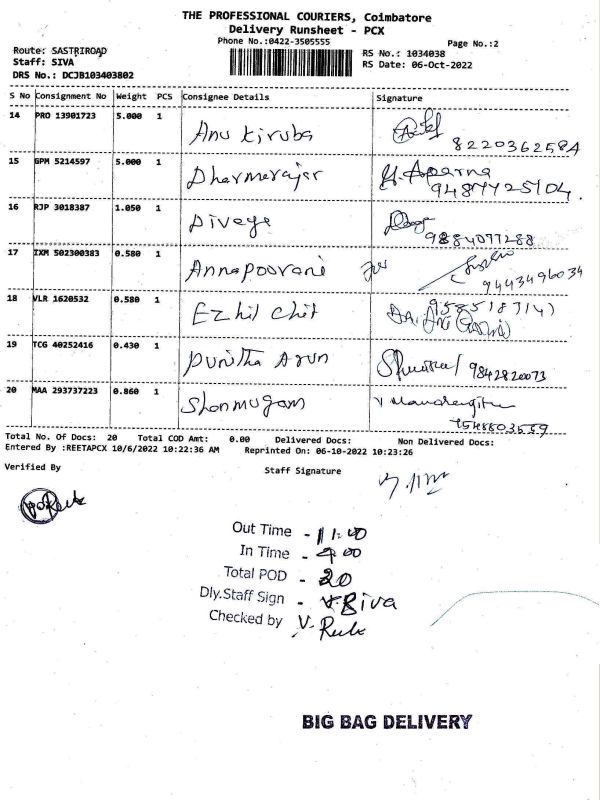 THE PROFESSIONAL COURIERS, Coimbatore
Delivery Runsheet - PCX
Phone No.:0422-3505555
Page No.:2
Route: SASTRIROAD
RS No.: 1034038
Staff: SIVA
RS Date: 06-Oct-2022
DRS No.: DCJB103403802
S No Consignment No Weight PCS Consignee Details Signature
14 PRO 13901723 5.000 1 Anu Kiruba 8220362584
15 GPM 5214597 5.000 1 Dharmarajar H. Aparna
9487725104
16 RJP 3018387 1.050 1 Divага
9884077288
17 IXM 502300383 0.580 1 Annapoorani
9443496034
18 VLR 1620532 0.580 1 Ezhil Chit
19 TCG 40252416 0.430 1 Punitha Arun 9842820073
20 MAA 293737223 0.860 1 Shanmugam
Total No. Of Docs: 20 Total COD Amt: 0.00 Delivered Docs: Non Delivered Docs:
Entered By :REETAPCX 10/6/2022 10:22:36 AM Reprinted On: 06-10-2022 10:23:26
Verified By
Staff Signature
Out Time - 11:00
In Time - 4 00
Total POD - 20
Dly.Staff Sign - V. Siva
Checked by V. Reeta
BIG BAG DELIVERY